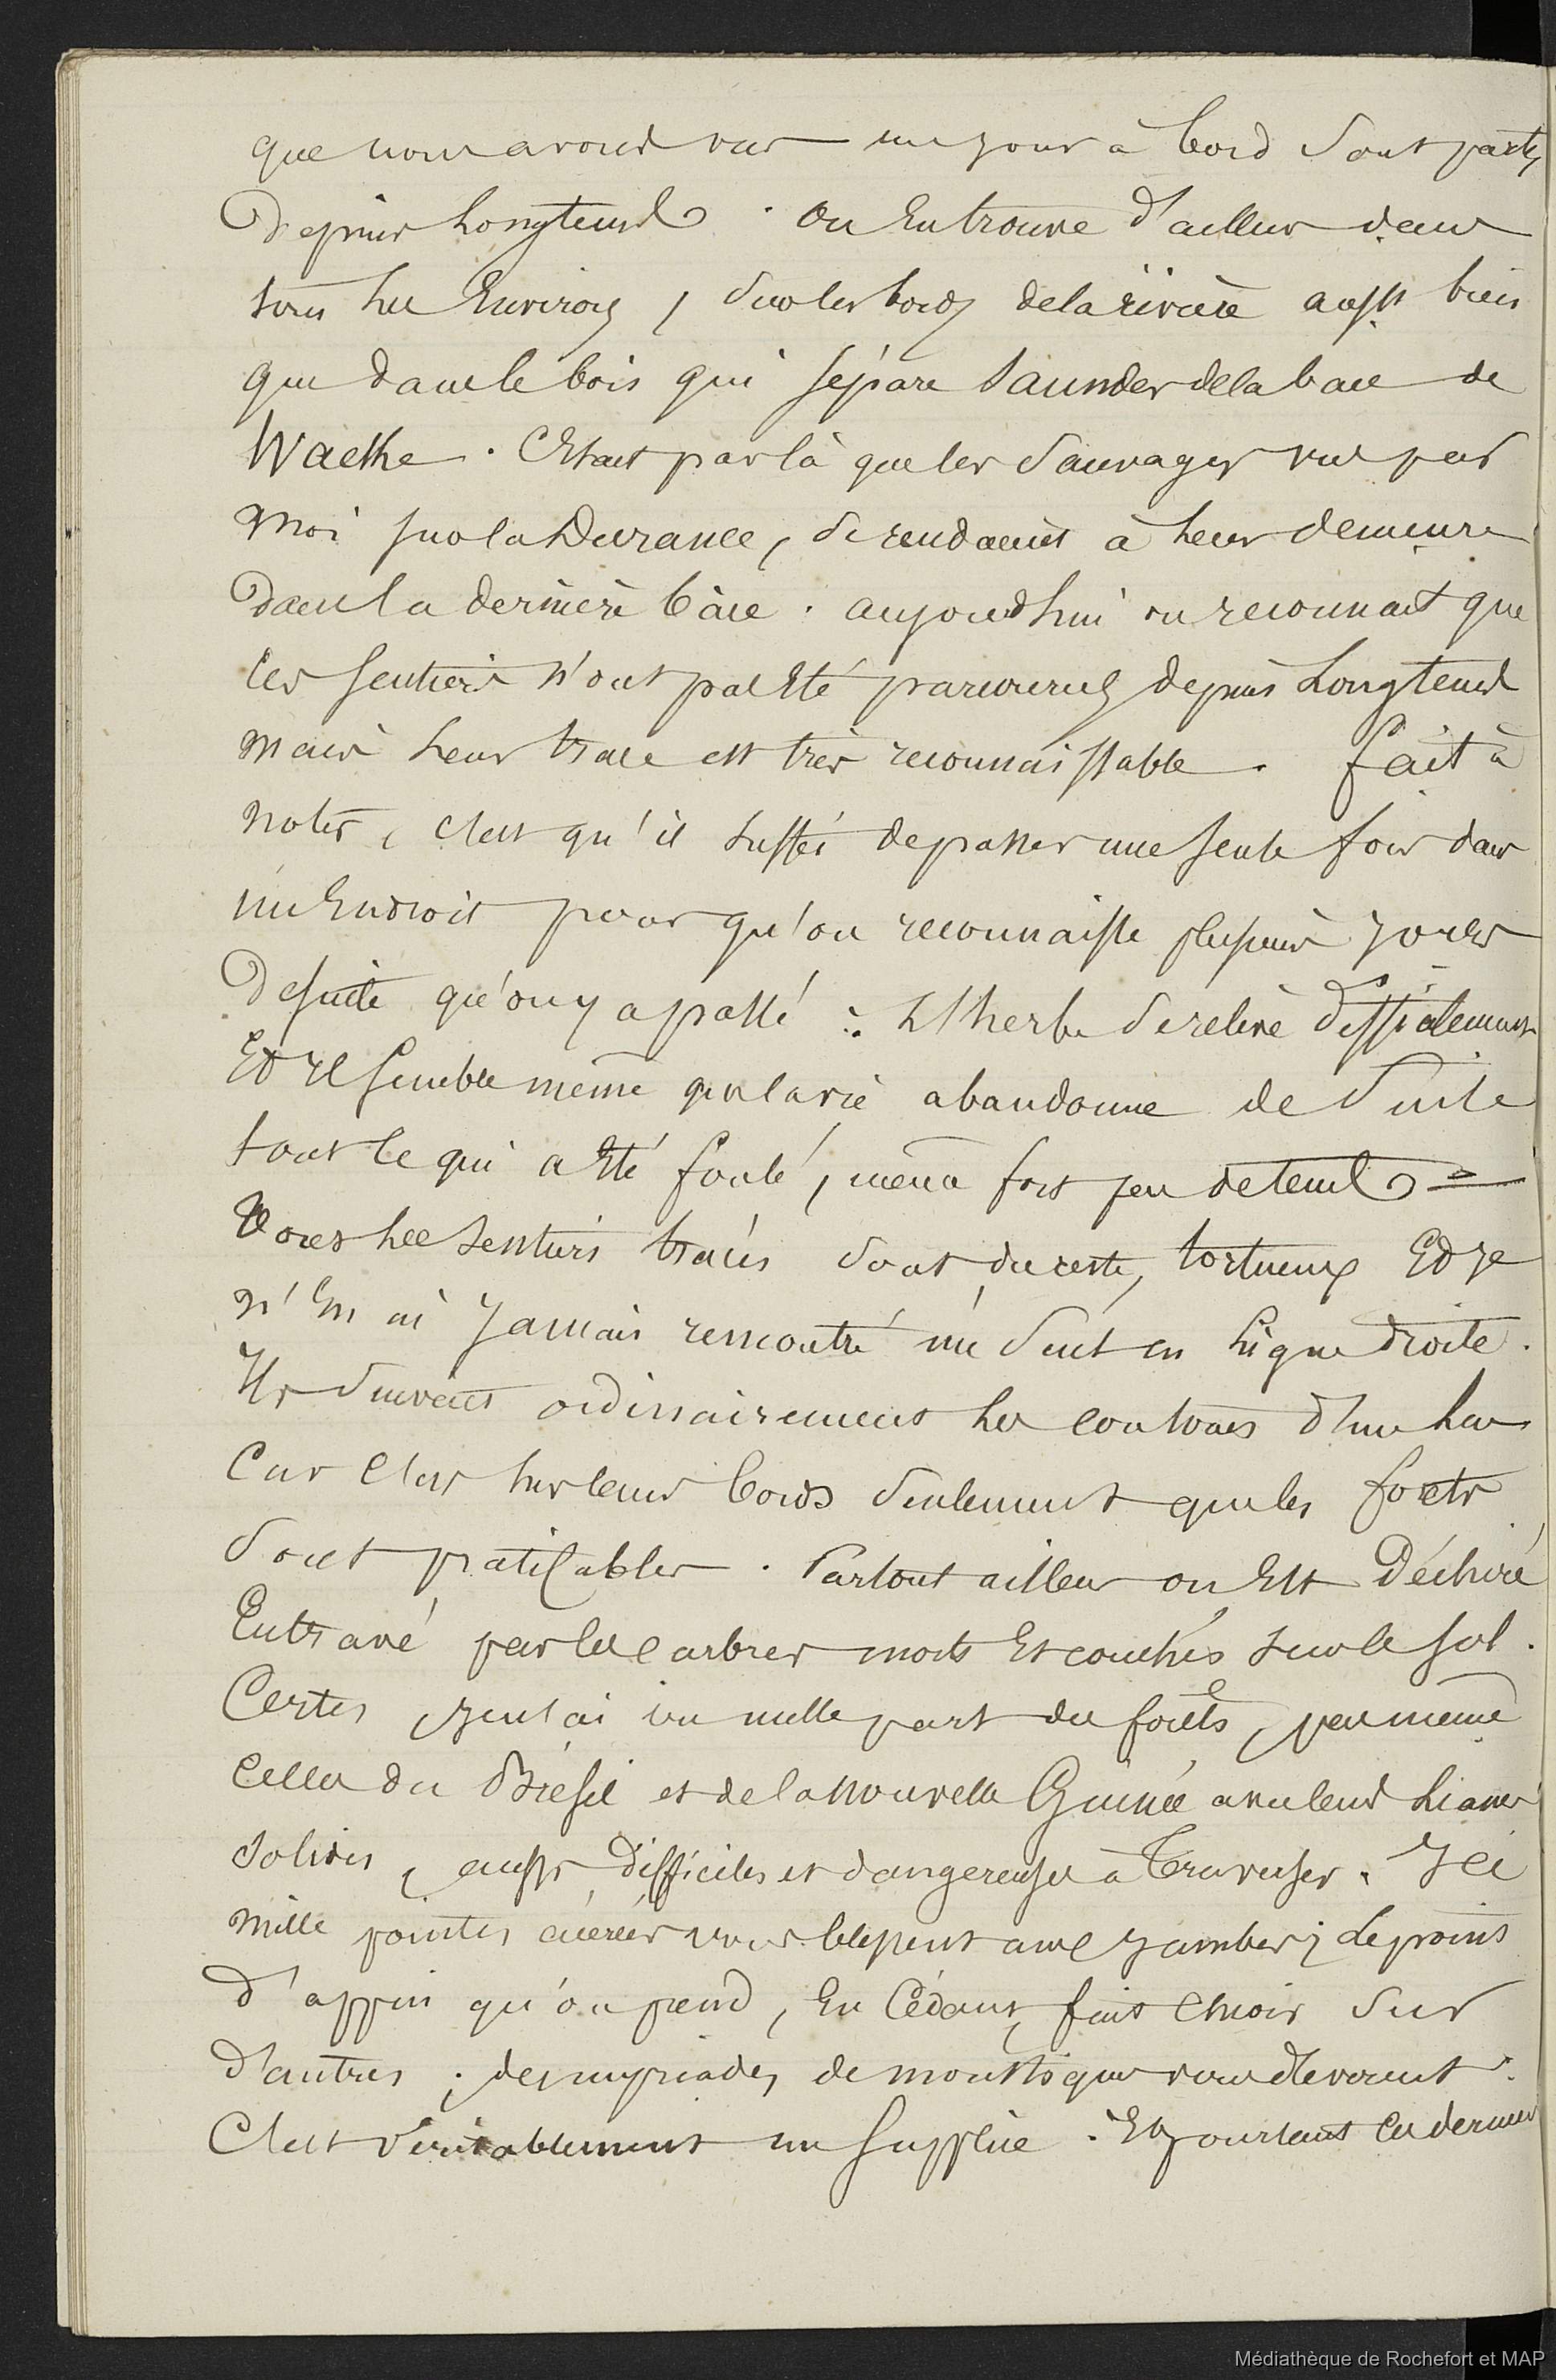 que nous avons vus un jour à bord sont partis
depuis longtems. On en trouve d'ailleurs dans
tous les environs, sur les bords de la rivière aussi bien
que dans le bois qui sépare Saunder de la baie de
C'était par là que les sauvages vus par
moi sur la Durance, se rendaient à leur demeure
dans la dernière baie. aujourdhui on reconnait que
les sentiers n'ont pas été parcourus depuis longtems
mais leur trace est très reconnaissable. fait à
noter, c'est qu'il suffit de passer une seule fois dans
un endroit pour qu'on reconnaisse plusieurs jours
de suite qu'on y a passé : l'herbe se relève difficilement
Et il semble même que la vie abandonne de suite
tout ce qui a été foulé, même fort peu de tems =
tous les sentiers tracés sont, du reste, tortueux Et je
n'en ai jamais rencontré un seul en ligne droite.
Ils suivent ordinairement les contours d'un lac
Car c'est sur leurs bords seulement que les forêts
sont praticables. Partout ailleurs on est déchiré
Entravé par les arbres morts et couchés sur le sol.
Certes, je n'ai vu nulle part des forêts, pas même
celles du Brésil et de la nouvelle Guinée avec leurs lianes
solides, aussi difficiles et dangereuses à traverser. Ici
mille pointes acérées vous blessent aux jambes ; le point
d'appui qu'on prend, en cédant, fait choir sur
d'autres ; des myriades de moustiques vous dévorent.
C'est véritablement un supplice. Et pourtant ces derniers
Médiathèque de Rochefort et MAP